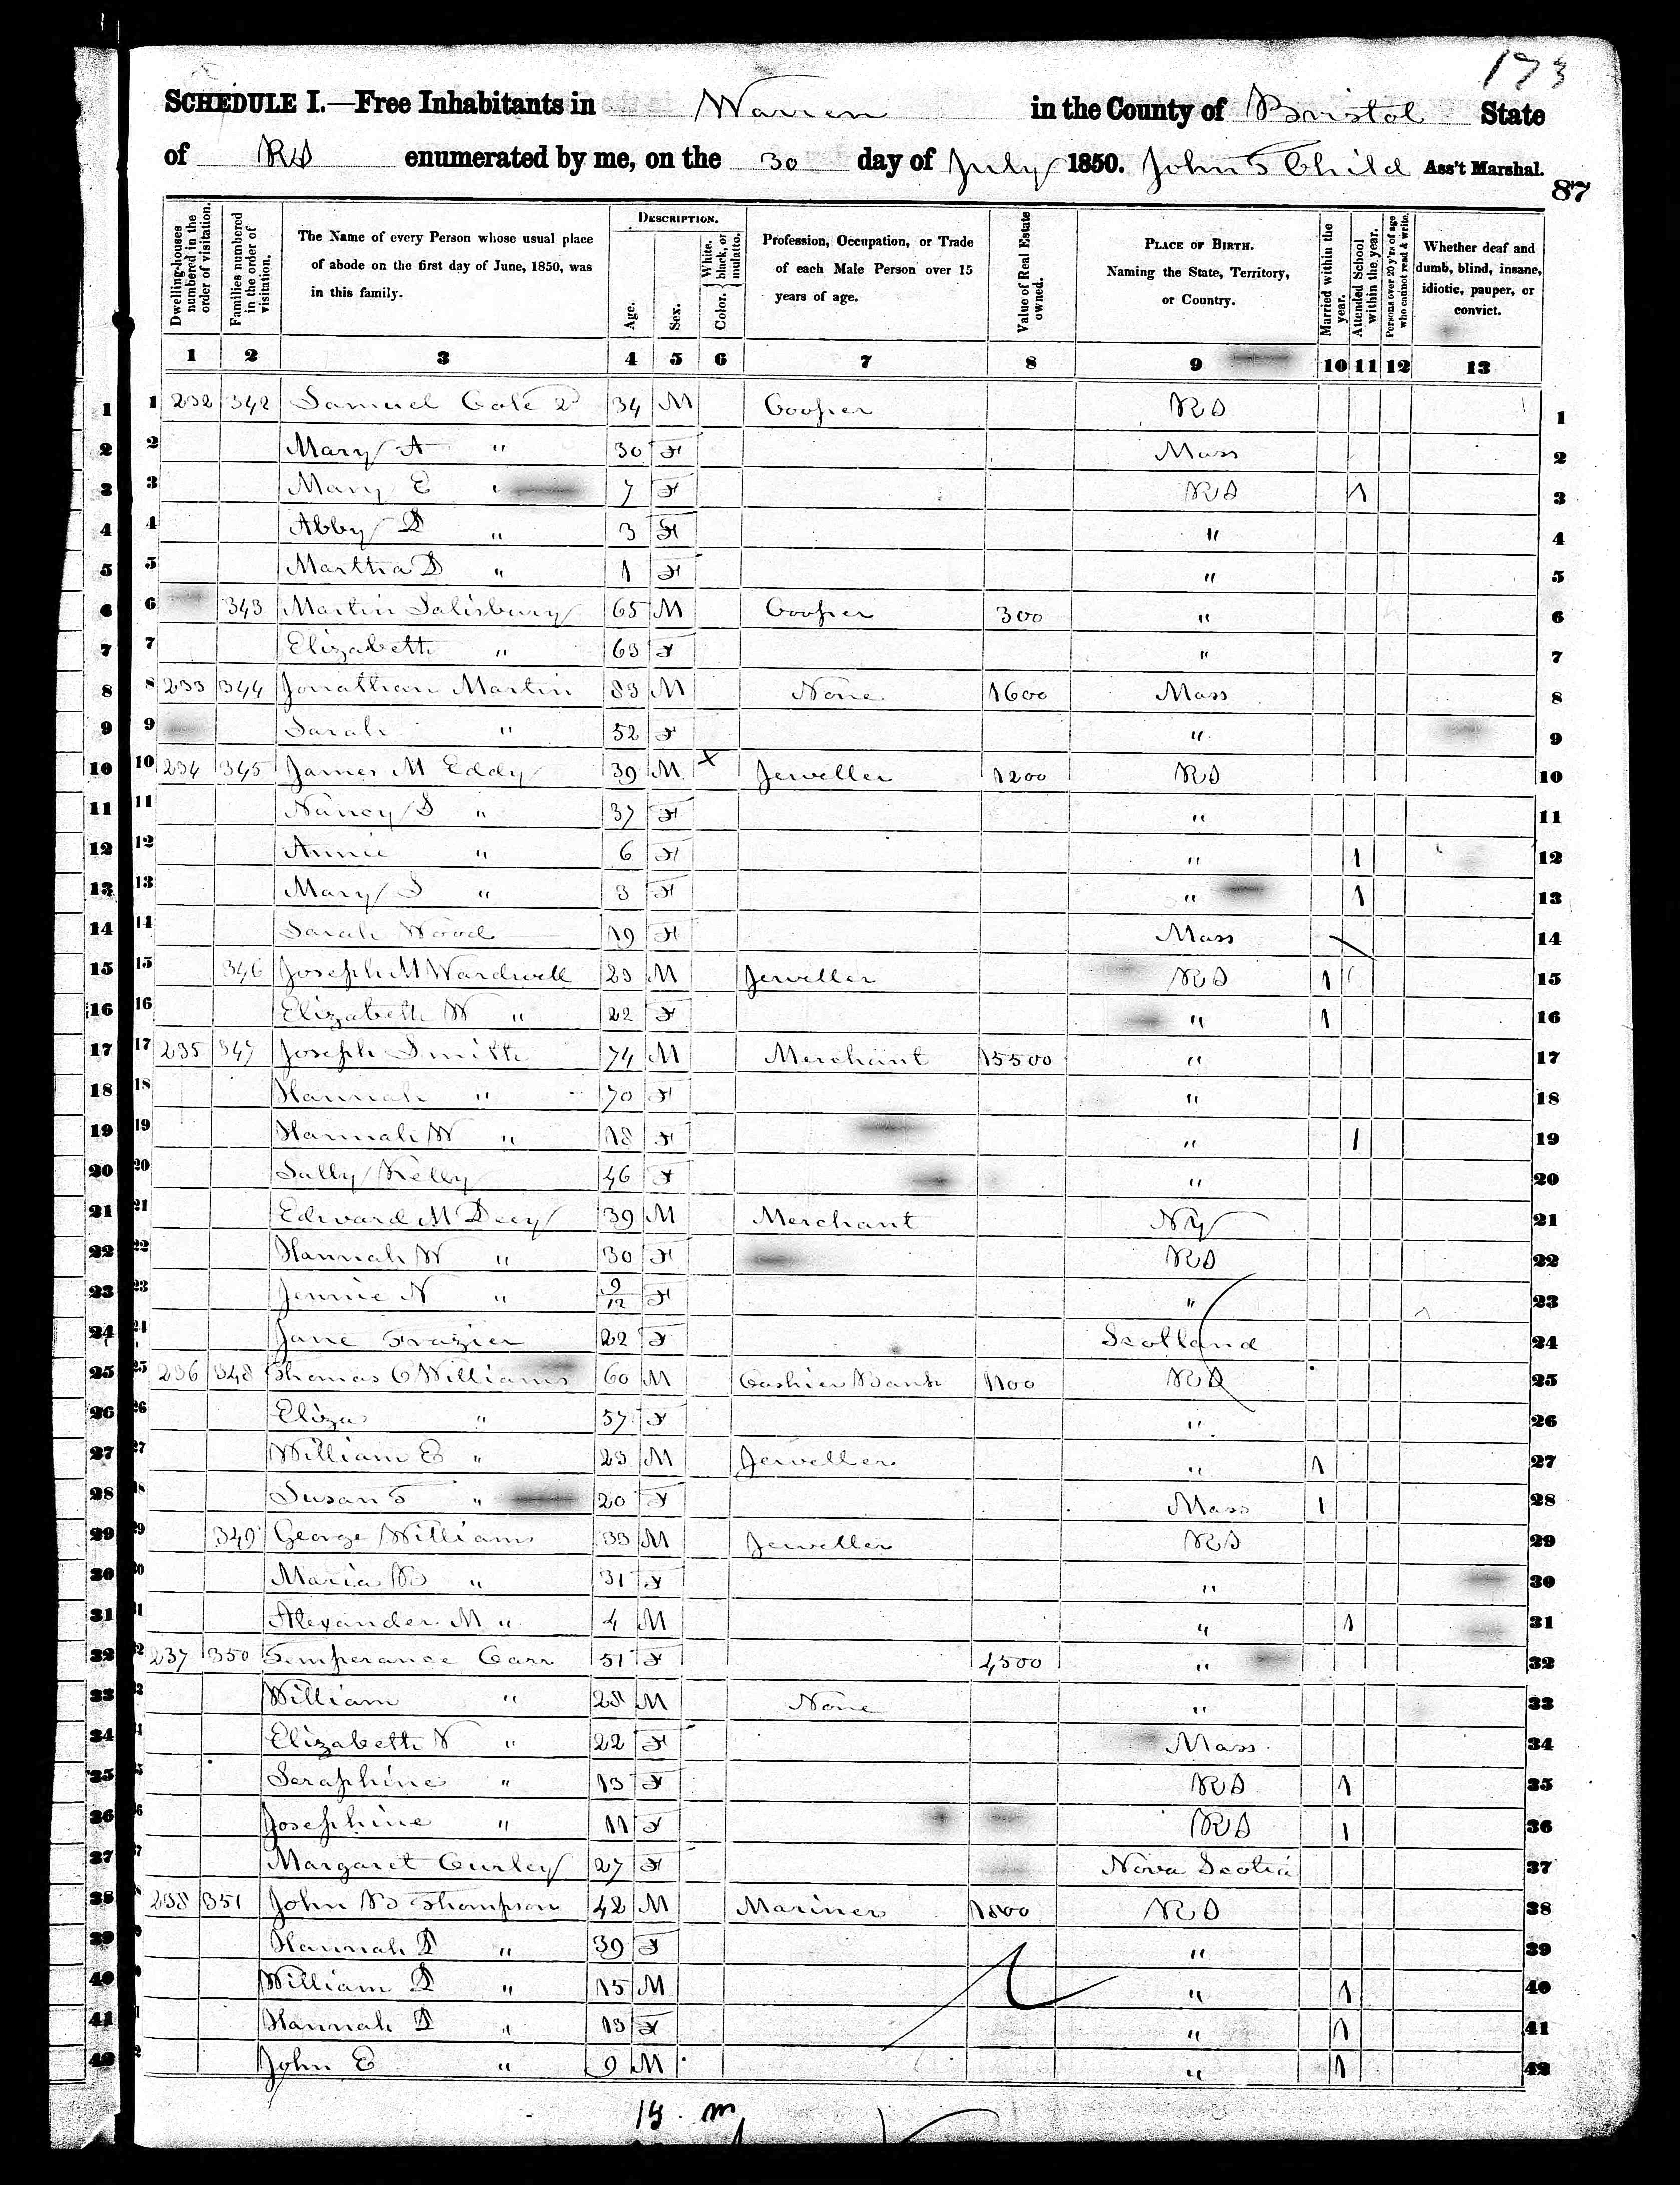 173
SCHEDULE I.—Free Inhabitants in Warren in the County of Bristol State
of RI enumerated by me, on the 30 day of July 1850. John T Child Ass't Marshal.
87
Dwelling-houses numbered in the order of visitation.
Families numbered in the order of visitation.
The Name of every Person whose usual place of abode on the first day of June, 1850, was in this family.
DESCRIPTION.
Age.
Sex.
Color. { White, black, or mulatto.
Profession, Occupation, or Trade of each Male Person over 15 years of age.
Value of Real Estate owned.
PLACE OF BIRTH. Naming the State, Territory, or Country.
Married within the year.
Attended School within the year.
Persons over 20 y'rs of age who cannot read & write.
Whether deaf and dumb, blind, insane, idiotic, pauper, or convict.
1 2 3 4 5 6 7 8 9 10 11 12 13
1 1 232 342 Samuel Cole 2d 34 M Cooper RI 1
2 2 Mary A " 30 F Mass 2
3 3 Mary E " 7 F RI 1 3
4 4 Abby D " 3 F " 4
5 5 Martha D " 1 F " 5
6 6 343 Martin Salisbury 65 M Cooper 300 " 6
7 7 Elizabeth " 63 F " 7
8 8 233 344 Jonathan Martin 83 M None 1600 Mass 8
9 9 Sarah " 52 F " 9
10 10 234 345 James M Eddy 39 M x Jeweller 1200 RI 10
11 11 Nancy S " 37 F " 11
12 12 Annie " 6 F " 1 12
13 13 Mary S " 3 F " 1 13
14 14 Sarah Wood 19 F Mass 14
15 15 346 Joseph M Wardwell 23 M Jeweller RI 1 15
16 16 Elizabeth W " 22 F " 1 16
17 17 235 347 Joseph Smith 74 M Merchant 15500 " 17
18 18 Hannah " 70 F " 18
19 19 Hannah W " 18 F " 1 19
20 20 Sally Kelly 46 F " 20
21 21 Edward M Deey 39 M Merchant NY 21
22 22 Hannah W " 30 F RI 22
23 23 Jennie N " 9/12 F " 23
24 24 Jane Frazier 22 F Scotland 24
25 25 236 348 Thomas C Williams 60 M Cashier Bank 1100 RI 25
26 26 Eliza " 57 F " 26
27 27 William E " 23 M Jeweller " 1 27
28 28 Susan T " 20 F Mass 1 28
29 29 349 George Williams 33 M Jeweller RI 29
30 30 Maria B " 31 F " 30
31 31 Alexander M " 4 M " 1 31
32 2 237 350 Temperance Carr 51 F 4500 " 32
33 3 William " 28 M None " 33
34 4 Elizabeth N " 22 F Mass 34
35 5 Seraphine " 13 F RI 1 35
36 6 Josephine " 11 F RI 1 36
37 7 Margaret Curley 27 F Nova Scotia 37
38 238 351 John B Thompson 42 M Mariner 1800 RI 38
39 Hannah D " 39 F " 39
40 William D " 15 M " 1 40
41 Hannah D " 13 F " 1 41
42 John E " 9 M " 1 42
15 m